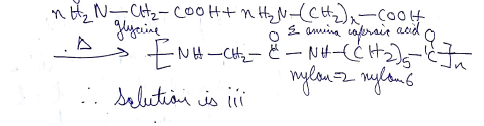 n H₂N—CH₂—COOH + n H₂N—(CH₂)ₓ—COOH
glycine ε amino caproic acid
Δ
[ NH—CH₂—C(=O)—NH—(CH₂)₅—C(=O) ]n
nylon=2 nylon6
∴ Solution is iii